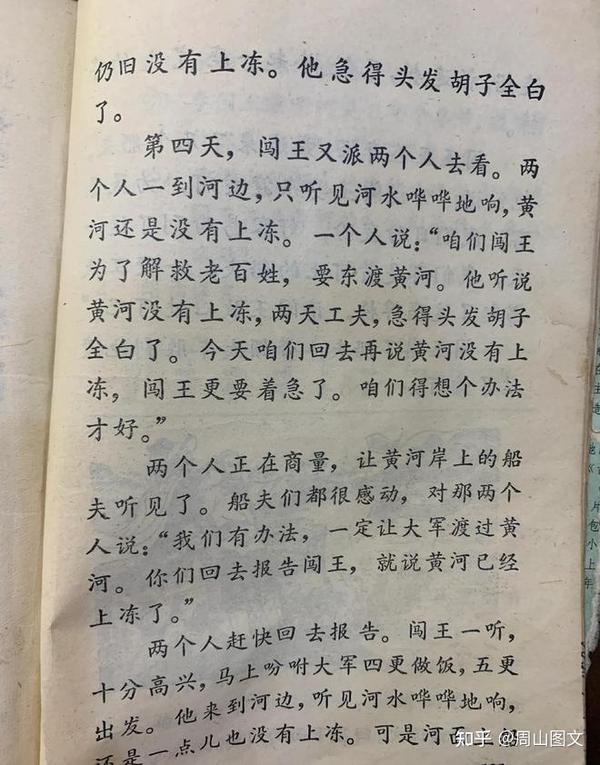 仍旧没有上冻。他急得头发胡子全白
了。
第四天，闯王又派两个人去看。两
个人一到河边，只听见河水哗哗地响，黄
河还是没有上冻。一个人说：“咱们闯王
为了解救老百姓，要东渡黄河。他听说
黄河没有上冻，两天工夫，急得头发胡子
全白了。今天咱们回去再说黄河没有上
冻，闯王更要着急了。咱们得想个办法
才好。”
两个人正在商量，让黄河岸上的船
夫听见了。船夫们都很感动，对那两个
人说：“我们有办法，一定让大军渡过黄
河。你们回去报告闯王，就说黄河已经
上冻了。”
两个人赶快回去报告。闯王一听，
十分高兴，马上吩咐大军四更做饭，五更
出发。他来到河边，听见河水哗哗地响，
还是一点儿也没有上冻。可是河面上
知乎 @周山图文